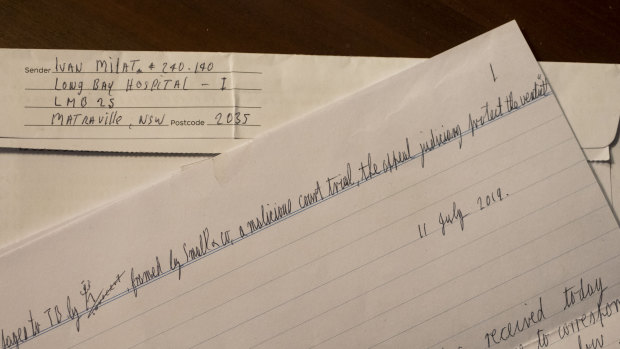 Sender IVAN MILAT # 240.140
LONG BAY HOSPITAL - I
LMB 25
MATRAVILLE, NSW Postcode 2035
1
to IB by framed by Small & co, a malicious court trial, the appeal judiciary protect the verdict"
11 July 2019.
received today
to correspon